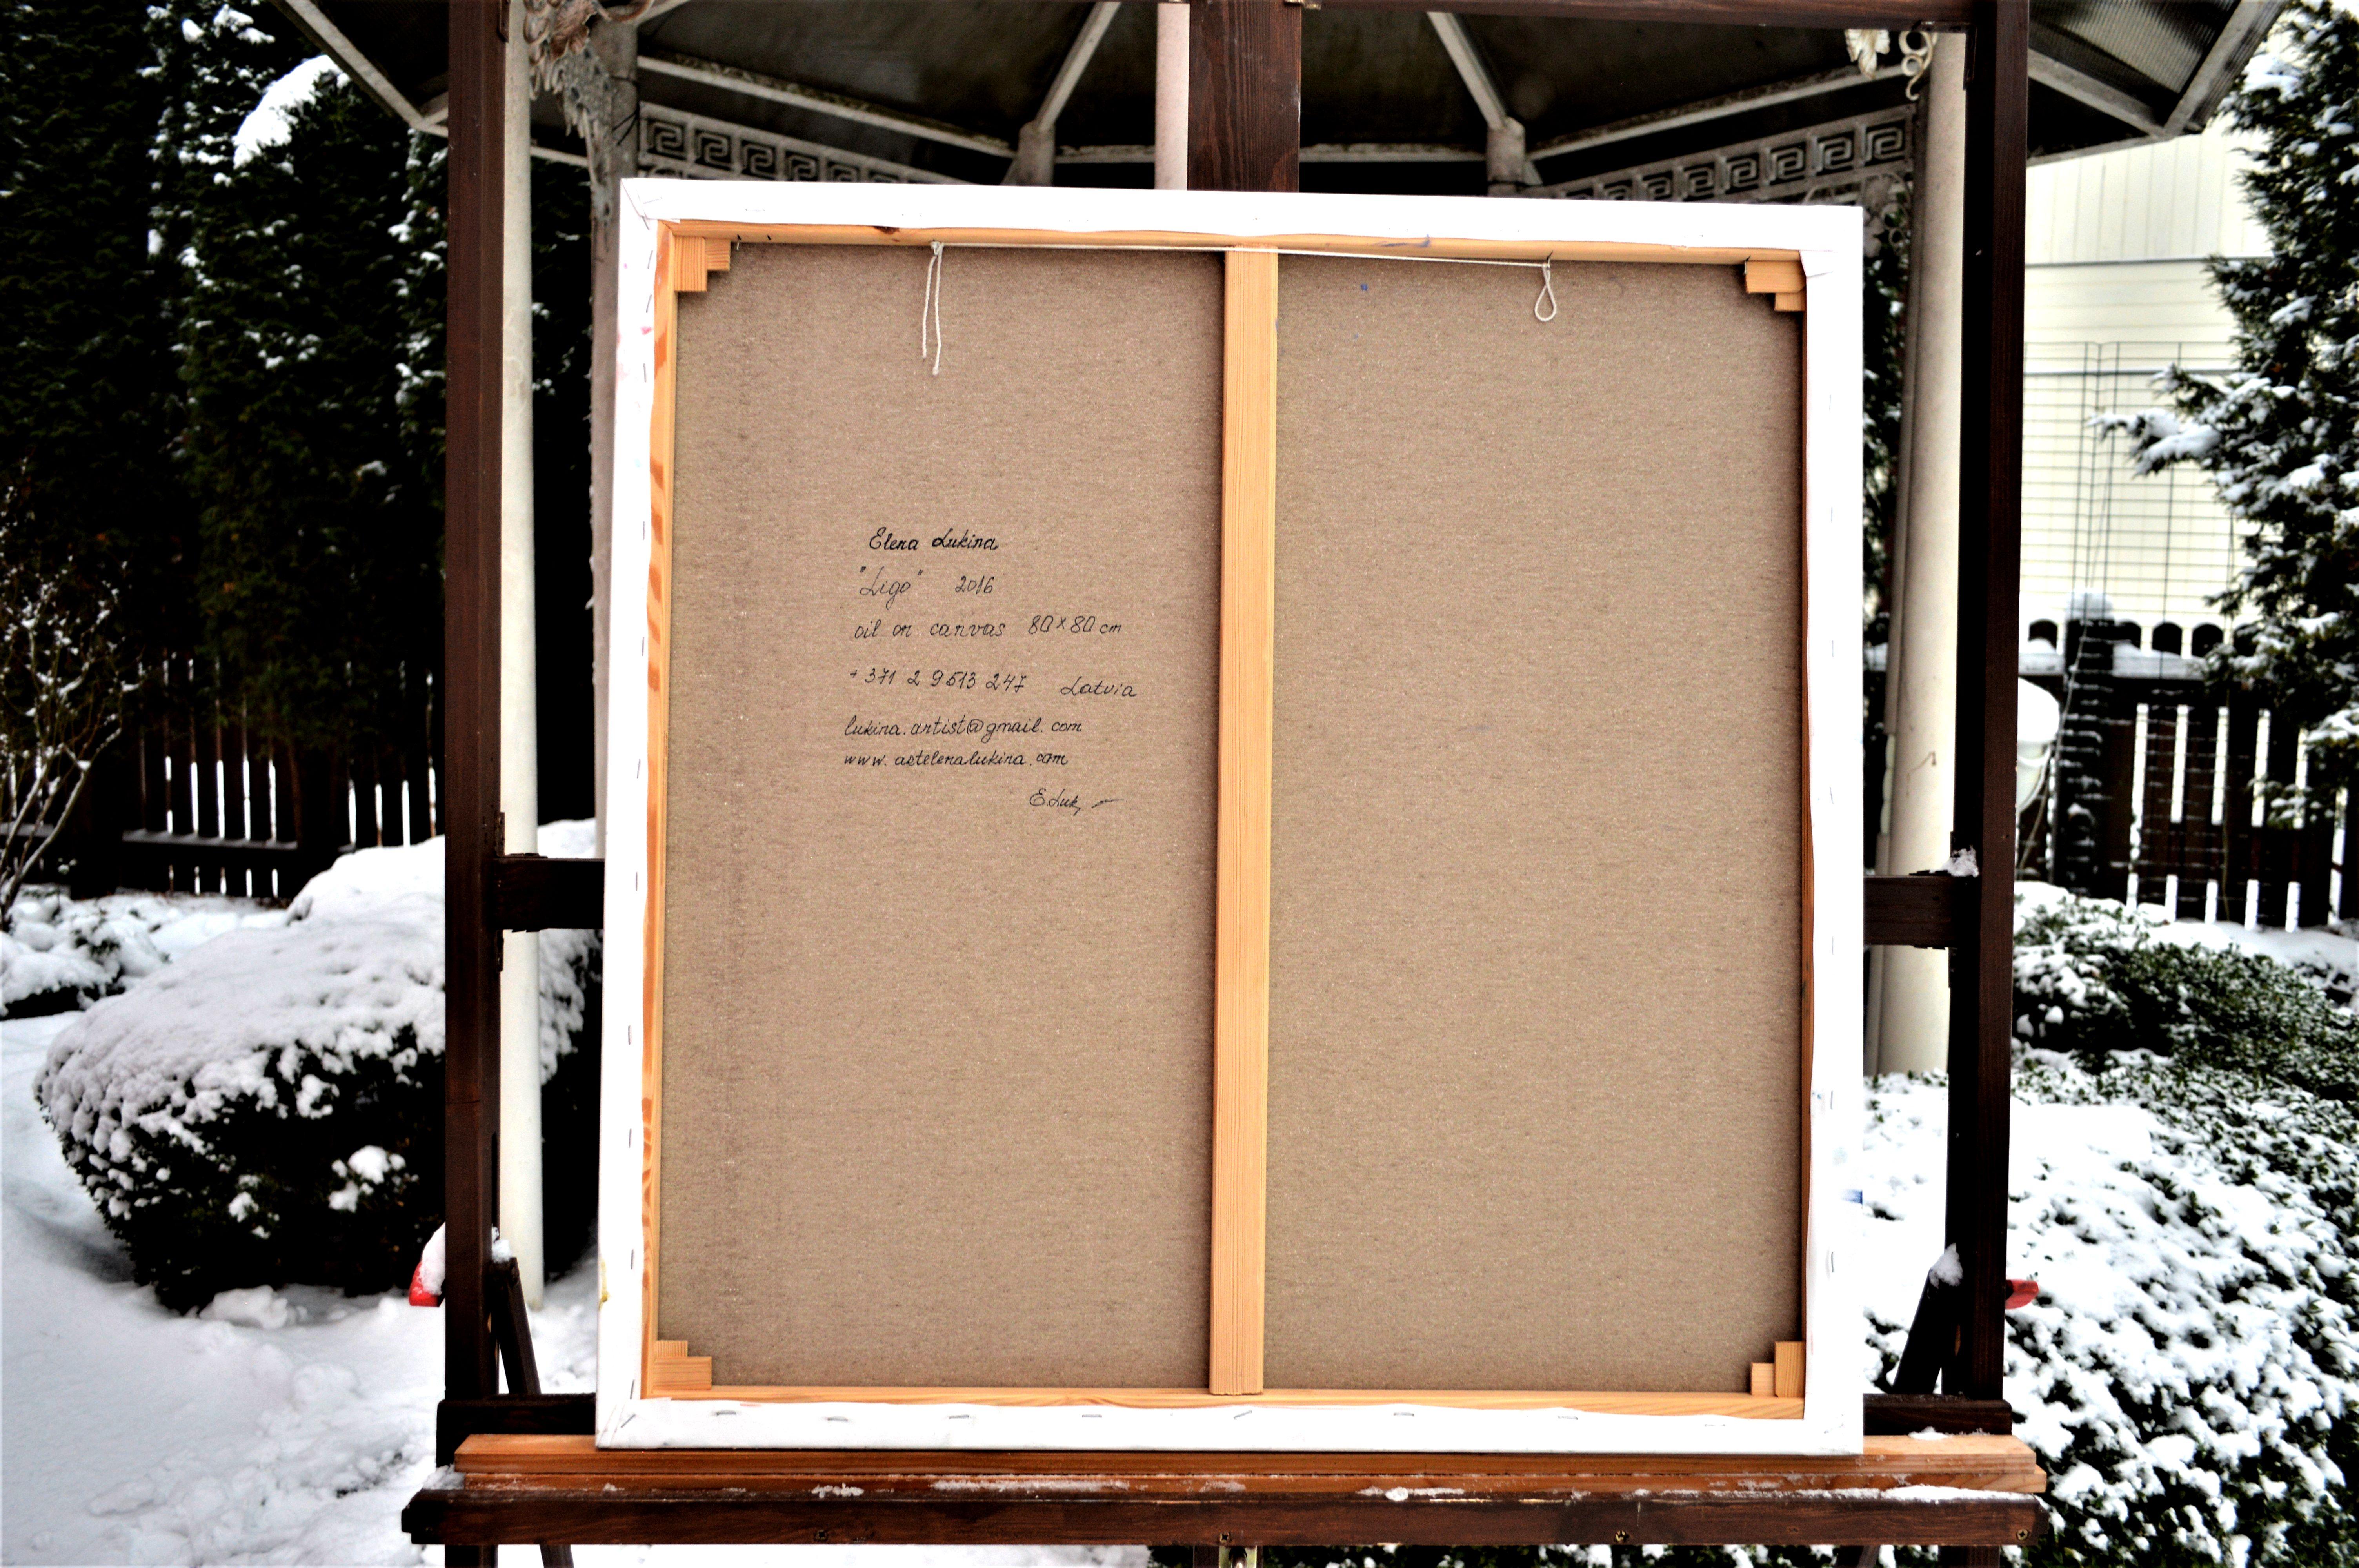 Elena Lukina
"Ligo" 2016
oil on canvas 80×80 cm
+371 2 9513 247 Latvia
lukina.artist@gmail.com
www.artelenalukina.com
E.Luk